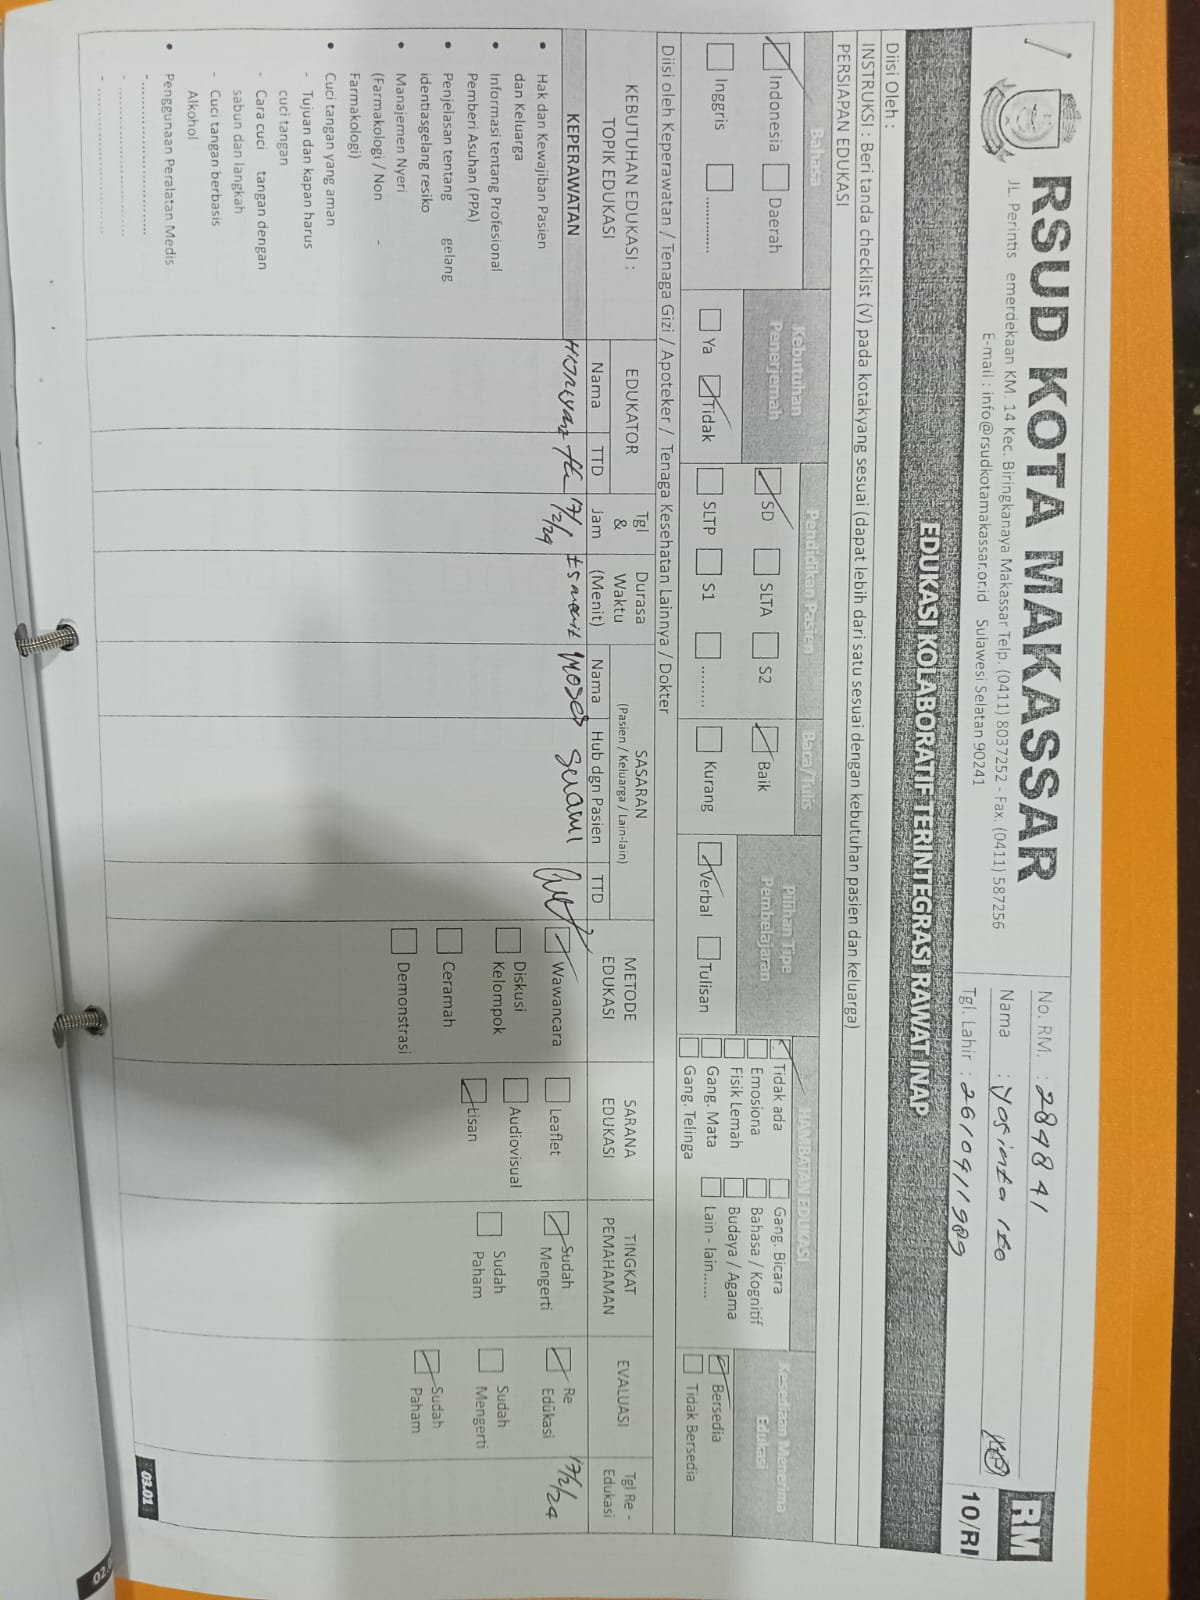 RSUD KOTA MAKASSAR
JL. Perintis emerdekaan KM. 14 Kec. Biringkanaya Makassar Telp. (0411) 8037252 - Fax. (0411) 587256
E-mail : info@rsudkotamakassar.or.id Sulawesi Selatan 90241
No. RM. : 284841
Nama :
Tgl. Lahir : 26/09/1989
RM
10/RI
EDUKASI KOLABORATIF TERINTEGRASI RAWAT INAP
Diisi Oleh :
INSTRUKSI : Beri tanda checklist (√) pada kotakyang sesuai (dapat lebih dari satu sesuai dengan kebutuhan pasien dan keluarga)
PERSIAPAN EDUKASI
Bahasa
Indonesia Daerah
Inggris ..............
Kebutuhan
Penerjemah
Ya Tidak
Pendidikan Pasien
SD SLTA S2
SLTP S1 .........
Baca/Tulis
Baik
Kurang
Pilihan Tipe
Pembelajaran
Verbal Tulisan
HAMBATAN EDUKASI
Tidak ada Gang. Bicara
Emosiona Bahasa / Kognitif
Fisik Lemah Budaya / Agama
Gang. Mata Lain - lain.......
Gang. Telinga
Kesediaan Menerima
Edukasi
Bersedia
Tidak Bersedia
Diisi oleh Keperawatan / Tenaga Gizi / Apoteker / Tenaga Kesehatan Lainnya / Dokter
KEBUTUHAN EDUKASI :
TOPIK EDUKASI
EDUKATOR
Nama TTD
Tgl
&
Jam
Durasa
Waktu
(Menit)
SASARAN
(Pasien / Keluarga / Lain-lain)
Nama Hub dgn Pasien TTD
METODE
EDUKASI
SARANA
EDUKASI
TINGKAT
PEMAHAMAN
EVALUASI
Tgl Re -
Edukasi
KEPERAWATAN
• Hak dan Kewajiban Pasien
dan Keluarga
• Informasi tentang Profesional
Pemberi Asuhan (PPA)
• Penjelasan tentang gelang
identiasgelang resiko
• Manajemen Nyeri
(Farmakologi / Non -
Farmakologi)
• Cuci tangan yang aman
- Tujuan dan kapan harus
cuci tangan
- Cara cuci tangan dengan
sabun dan langkah
- Cuci tangan berbasis
Alkohol
• Penggunaan Peralatan Medis
- ..............................
- ..............................
- ..............................
17/2/24
Moses
Suami
Wawancara
Diskusi
Kelompok
Ceramah
Demonstrasi
Leaflet
Audiovisual
Lisan
Sudah
Mengerti
Sudah
Paham
Re
Edukasi
Sudah
Mengerti
Sudah
Paham
17/2/24
03.01